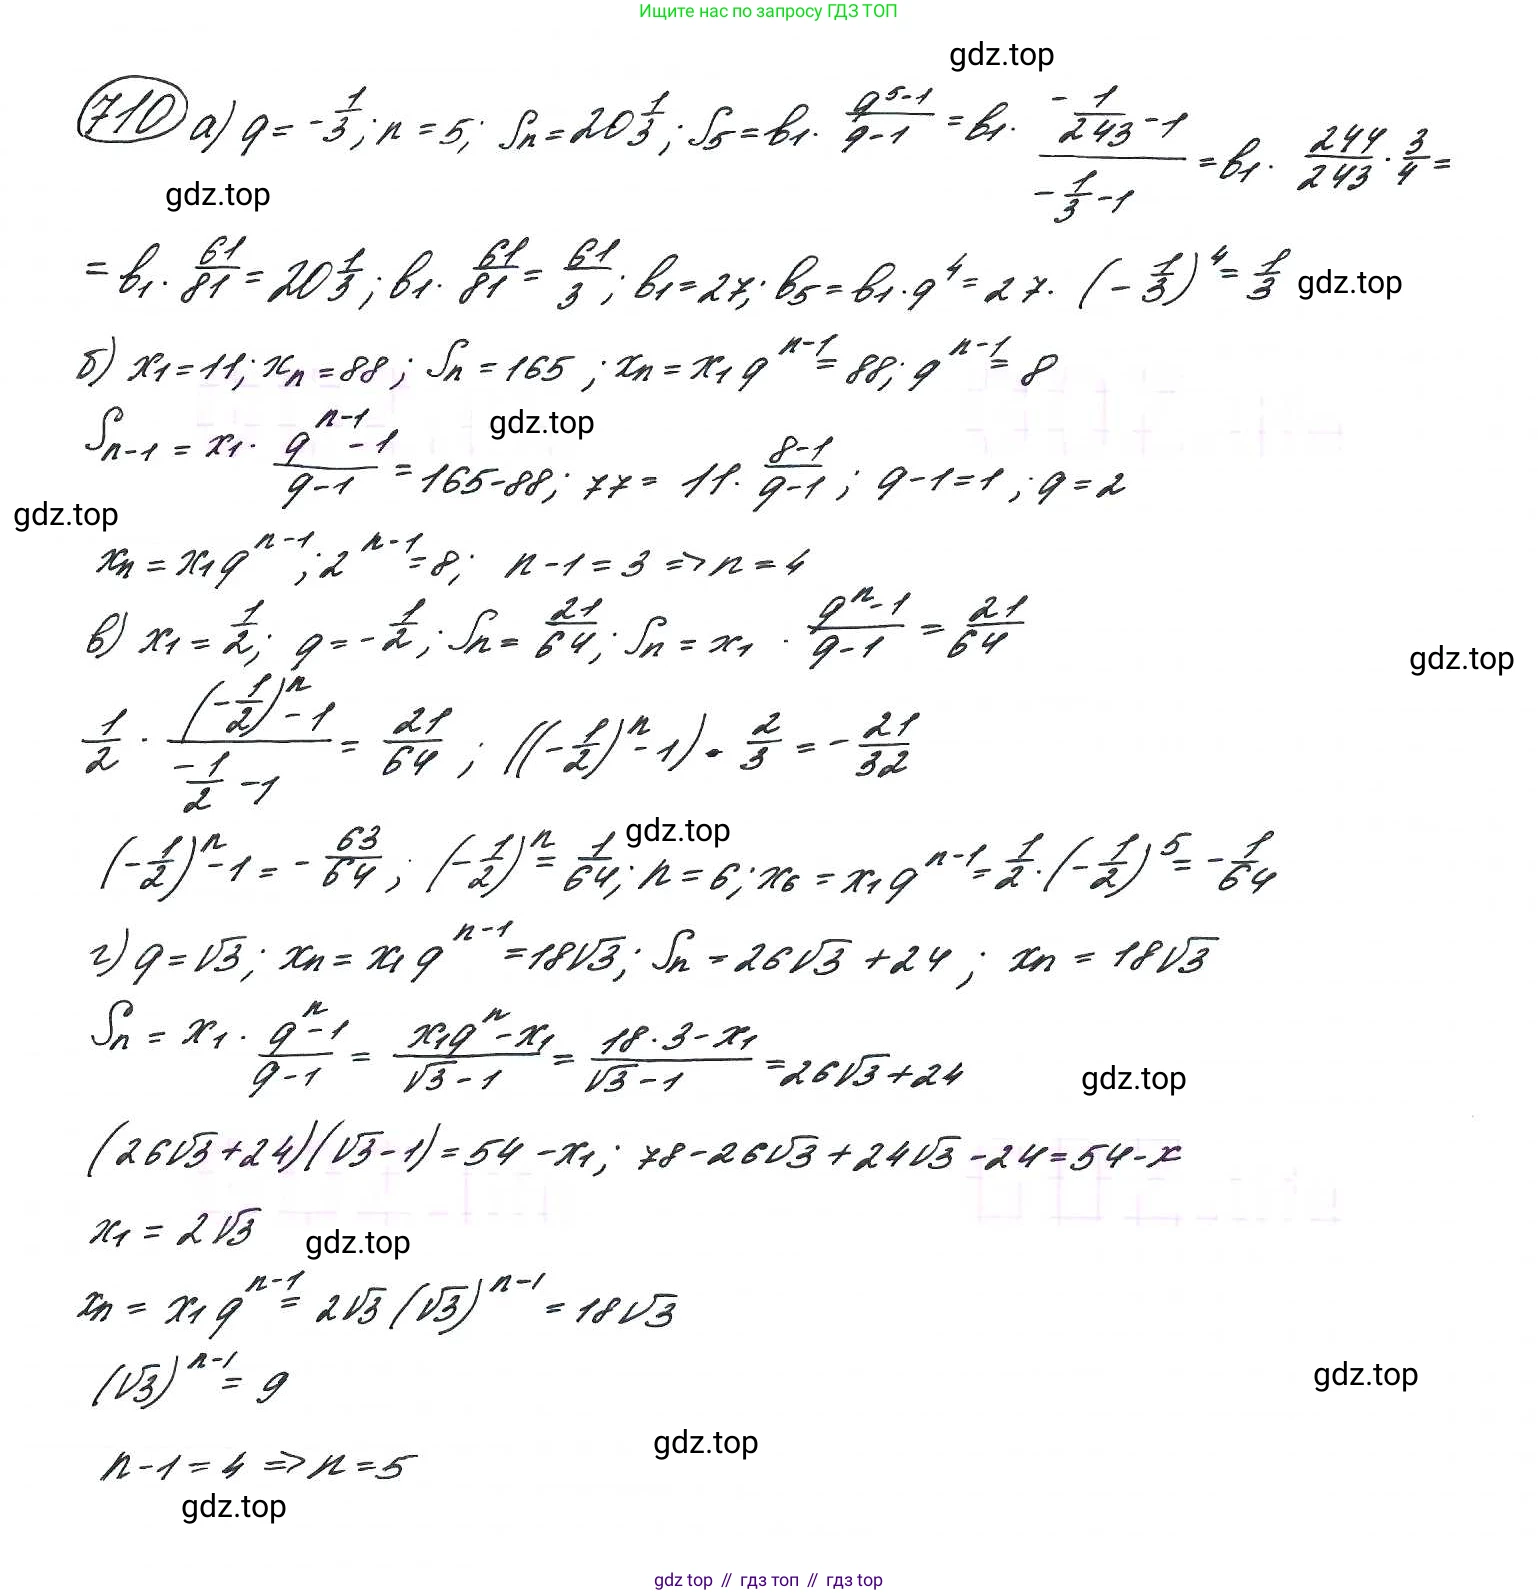 Ищите нас по запросу ГДЗ ТОП
gdz.top
710 а) q = -1/3; n = 5; Sn = 20 1/3; S5 = b1 · (q^5-1)/(q-1) = b1 · (-1/243 - 1)/(-1/3 - 1) = b1 · 244/243 · 3/4 =
gdz.top
= b1 · 61/81 = 20 1/3; b1 · 61/81 = 61/3; b1 = 27; b5 = b1 · q^4 = 27 · (-1/3)^4 = 1/3
gdz.top
б) x1 = 11; xn = 88; Sn = 165; xn = x1 q^(n-1) = 88; q^(n-1) = 8
gdz.top
S(n-1) = x1 · (q^(n-1) - 1)/(q-1) = 165-88; 77 = 11 · (8-1)/(q-1); q-1=1; q=2
gdz.top
xn = x1 q^(n-1); 2^(n-1) = 8; n-1 = 3 => n = 4
в) x1 = 1/2; q = -1/2; Sn = 21/64; Sn = x1 · (q^n - 1)/(q-1) = 21/64
gdz.top
1/2 · ((-1/2)^n - 1)/(-1/2 - 1) = 21/64; ((-1/2)^n - 1) · 2/3 = -21/32
gdz.top
(-1/2)^n - 1 = -63/64; (-1/2)^n = 1/64; n = 6; x6 = x1 q^(n-1) = 1/2 · (-1/2)^5 = -1/64
г) q = √3; xn = x1 q^(n-1) = 18√3; Sn = 26√3 + 24; xn = 18√3
Sn = x1 · (q^n - 1)/(q-1) = (x1q^n - x1)/(√3 - 1) = (18 · 3 - x1)/(√3 - 1) = 26√3 + 24
gdz.top
(26√3 + 24)(√3 - 1) = 54 - x1; 78 - 26√3 + 24√3 - 24 = 54 - x
x1 = 2√3
gdz.top
xn = x1 q^(n-1) = 2√3 (√3)^(n-1) = 18√3
(√3)^(n-1) = 9
gdz.top
gdz.top
n-1 = 4 => n = 5
gdz.top
gdz.top // гдз топ // gdz.top